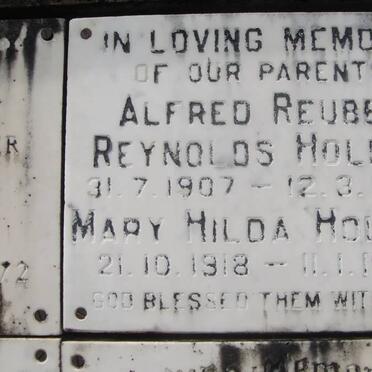 IN LOVING MEMO
OF OUR PARENT
ALFRED REUBE
REYNOLDS HOL
31.7.1907 - 12.3.
MARY HILDA HO
21.10.1918 - 11.1.1
GOD BLESSED THEM WIT
R
72